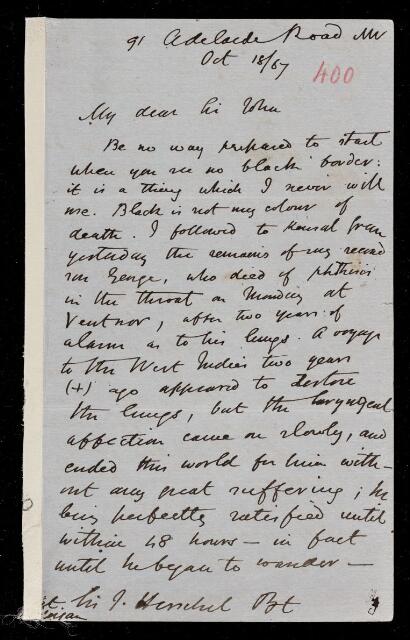 91 Adelaide Road NW
Oct 18/67
400
My dear Sir John
Be no way prepared to start
when you see no black border:
it is a thing which I never will
use. Black is not my colour of
death. I followed to Kensal Green
yesterday the remains of my second
son George, who died of phthisis
in the throat on Monday at
Ventnor, after two years of
alarm as to his lungs. A voyage
to the West Indies two years
(+) ago appeared to restore
the lungs, but the laryngeal
affection came on slowly, and
ended this world for him with-
out any great suffering; he
being perfectly satisfied until
within 48 hours — in fact
until he began to wander —
Sir J. Herschel Bt